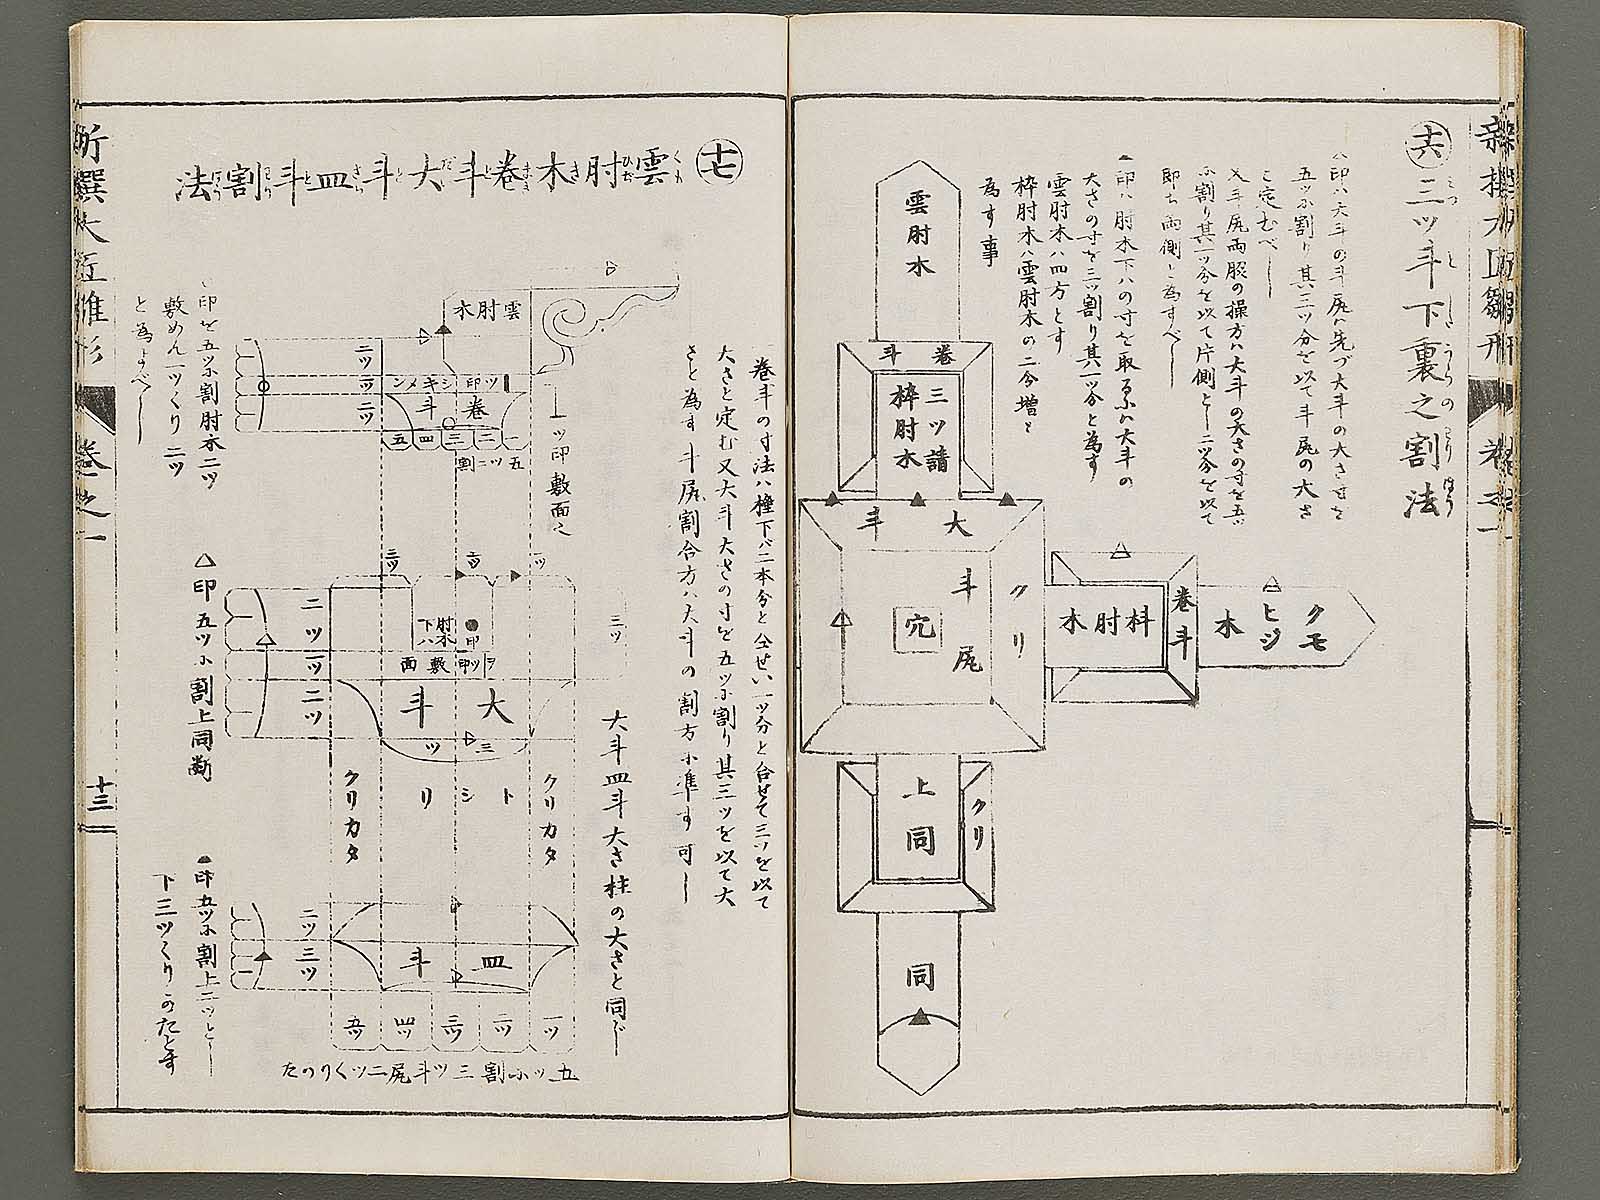 新撰大匠雛形
巻之一
十六 三ツ斗下裏之割法
△印ハ大斗の斗尻ハ先づ大斗の大さ寸を
五ツに割り其三ツ分を以て斗尻の大さ
と定むべし
又斗尻両脇の操方ハ大斗の大さの寸を五ツ
に割り其一ツ分を以て片側とし二ツ分を以て
即ち両側と為すべし
▲印ハ肘木下ハの寸を取るにハ大斗の
大さの寸を三ツ割り其一ツ分と為す
雲肘木ハ四方とす
枠肘木ハ雲肘木の二分増と
為す事
雲肘木
巻斗
三ツ請
枠肘木
大斗
クリ
斗尻
穴
巻斗
枓肘木
クモ
ヒジ
木
上同
クリ
同
十七 雲肘木巻斗大斗皿斗割法
巻斗の寸法ハ捶下バ二本分と
大さと定む又大斗大さの寸を五ツに割り其三ツを以て大
さと為す斗尻割合方ハ大斗の割方に準す可し
大斗皿斗大さ柱の大さと同じ
雲肘木
一ツ印
シキメン
巻斗
一
二
三
四
五
五ツニ割
一ツ印敷面之
二ツ
一ツ
二ツ
一ツ
三ツ
三ツ
肘木
下ハ
印
ヲ
一ツ印
敷面
大斗
三ツ
二ツ
一ツ
二ツ
クリカタ
トシリ
クリカタ
皿斗
二ツ
三ツ
一ツ
二ツ
三ツ
四ツ
五ツ
五ツに割三ツ斗尻二ツくりのた
印を五ツに割肘木二ツ
敷めん一ツくり二ツ
と為すべし
△印五ツに割上同断
▲印五ツに割上二ツとし
下三ツくりのたとす
新撰大匠雛形
巻之一
十三